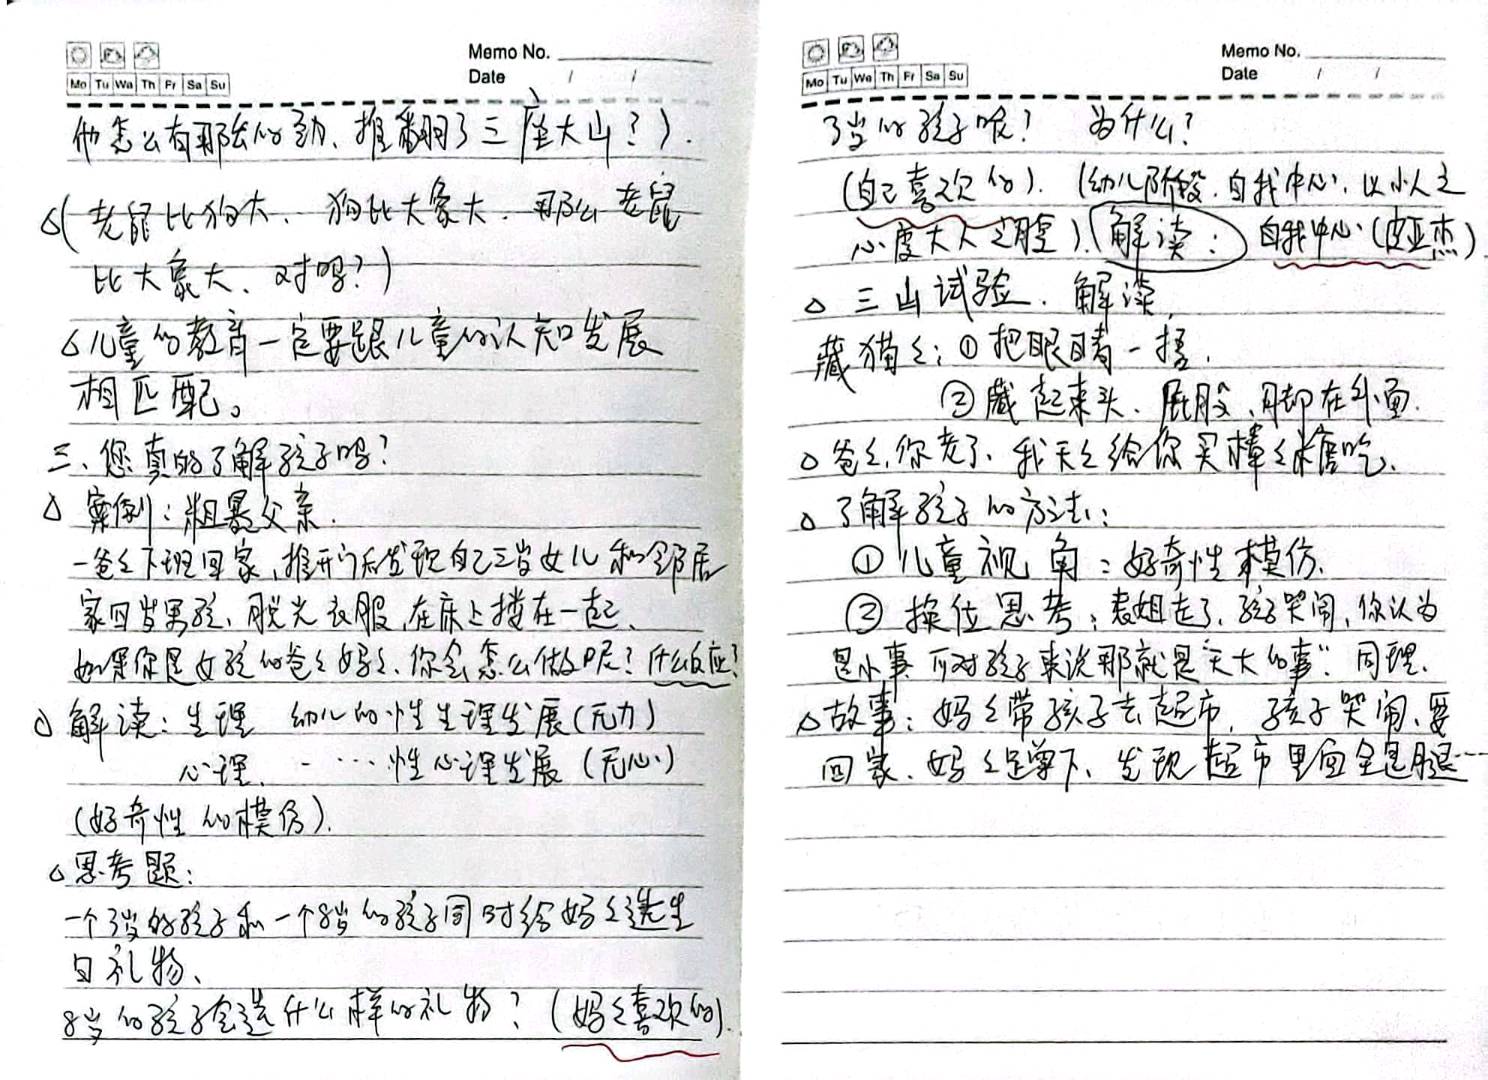 Memo No.
Date / /
Mo Tu We Th Fr Sa Su
他怎么有那么的劲、推翻了三座大山？）.
△（老鼠比狗大、狗比大象大、那么老鼠
比大象大、对吗？）
△儿童的教育一定要跟儿童的认知发展
相匹配。
三、您真的了解孩子吗？
△ 案例：粗暴父亲.
一爸々下班回家,推开门后发现自己三岁女儿和邻居
家四岁男孩、脱光衣服,在床上搂在一起、
如果你是女孩的爸々妈々、你会怎么做呢？什么反应？
△ 解读：生理 幼儿的性生理发展（无力）
心理、- - …性心理发展（无心）
（好奇性的模仿）.
△思考题：
一个3岁的孩子和一个8岁的孩子同时给妈々选生
日礼物、
8岁的孩子会选什么样的礼物？（妈々喜欢的）.
Memo No.
Date / /
Mo Tu We Th Fr Sa Su
3岁的孩子呢？ 为什么？
（自己喜欢的）.（幼儿阶段.自我中心、以小人之
心度大人之腹）.解读： 自我中心（皮亚杰）
△ 三山试验、解读,
藏猫々：①把眼睛一捂.
②藏起来头、屁股、脚在外面.
△爸々,你老了、我天々给你买棒々糖吃、
△ 了解孩子的方法：
① 儿童视角：好奇性模仿.
② 换位思考：表姐走了、孩子哭闹,你认为
是小事、而对孩子来说那就是“天大的事” 同理.
△故事：妈々带孩子去超市,孩子哭闹、要
回家、妈々蹲下、发现超市里面全是腿…